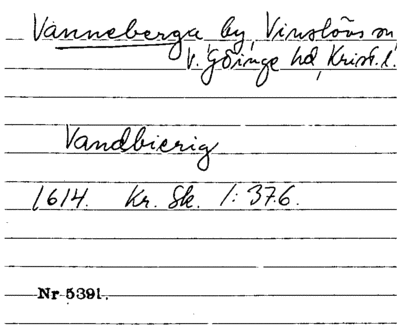 Vanneberga by, Vinslövs sn,
V. Göinge hd, Krist. l.
Vandbierig
1614. Kr. Sk. 1: 376.
Nr 5391.